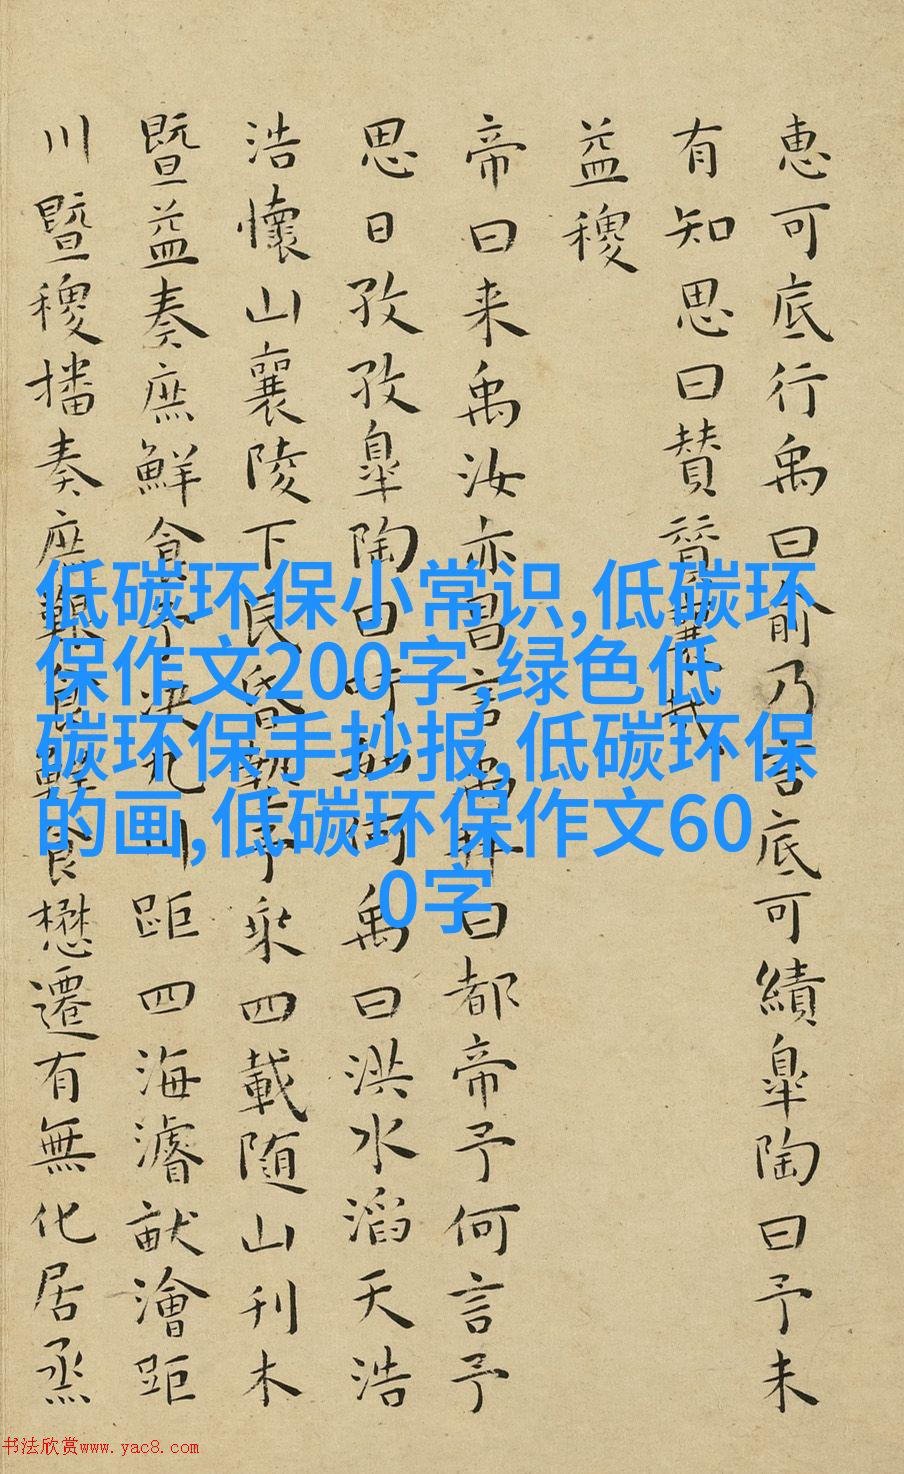 恵可底行禹曰俞乃言底可績臯陶曰予未
有知思曰賛賛襄哉
益稷
帝曰来禹汝亦昌言禹拜曰都帝予何言予
思日孜孜臯陶曰吁如何禹曰洪水滔天浩
浩懷山襄陵下民昏墊予乘四載随山刊木
暨益奏庶鮮食予決九川距四海濬畎澮距
川暨稷播奏庶艱食鮮食懋遷有無化居烝
低碳环保小常识,低碳环
保作文200字,绿色低
碳环保手抄报,低碳环保
的画,低碳环保作文60
0字
书法欣赏www.yac8.com